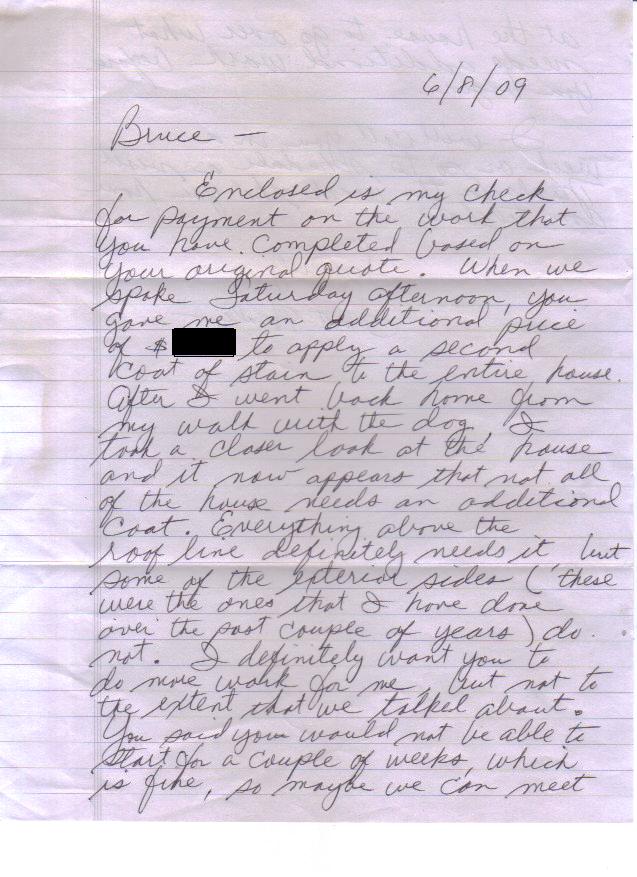 6/8/09
Bruce —
Enclosed is my check
for payment on the work that
you have completed based on
your original quote. When we
spoke Saturday afternoon, you
gave me an additional price
of $ to apply a second
coat of stain to the entire house.
After I went back home from
my walk with the dog, I
took a closer look at the house
and it now appears that not all
of the house needs an additional
coat. Everything above the
roof line definitely needs it but
some of the exterior sides (these
were the ones that I have done
over the past couple of years) do
not. I definitely want you to
do more work for me, but not to
the extent that we talked about.
You said you would not be able to
start for a couple of weeks, which
is fine, so maybe we can meet